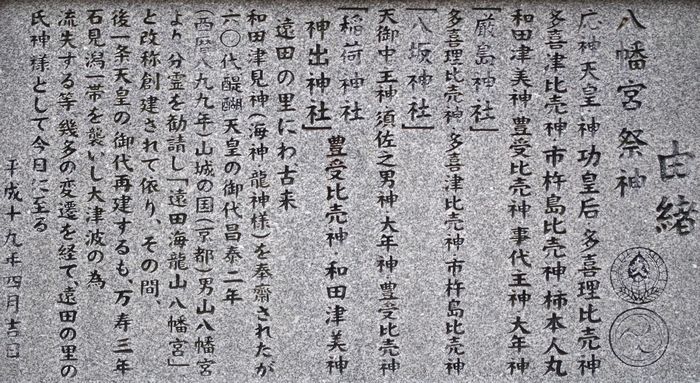 由緒
八幡宮祭神
応神天皇 神功皇后 多喜理比売神
多喜津比売神 市杵島比売神 柿本人丸
和田津美神 豊受比売神 事代王神 大年神
「厳島神社」
多喜理比売神 多喜津比売神 市杵島比売神
「八坂神社」
天御中王神 須佐之男神 大年神 豊受比売神
「稲荷神社
神出神社」 豊受比売神 和田津美神
遠田の里にわ、古来
和田津見神(海神 龍神様)を奉齋されたが
六〇代醍醐天皇の御代昌泰二年
(西暦八九九年)山城の国(京都)男山八幡宮
より分霊を勧請し「遠田海龍山八幡宮」
と改称創建されて依り、その間、
後一条天皇の御代再建するも、万寿三年
石見潟一帯を襲いし大津波の為
流失する等幾多の変遷を経て、遠田の里の
氏神様として今日に至る
平成十九年四月吉日